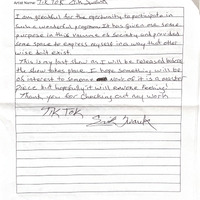 Artist Name: TIK TOK
I am greatful for the oportunity to participate in
such a wonderful program. It has given me some
purpose in this vacume of society and provided
some space to express myself in a way that other
wise dont exist.
This is my last show as I will be released before
the show takes place. I hope something will be
of interest to someone None of it is a master
piece but hopefully it will envoke feeling!
Thank you for Checking out my work
TIK TOK